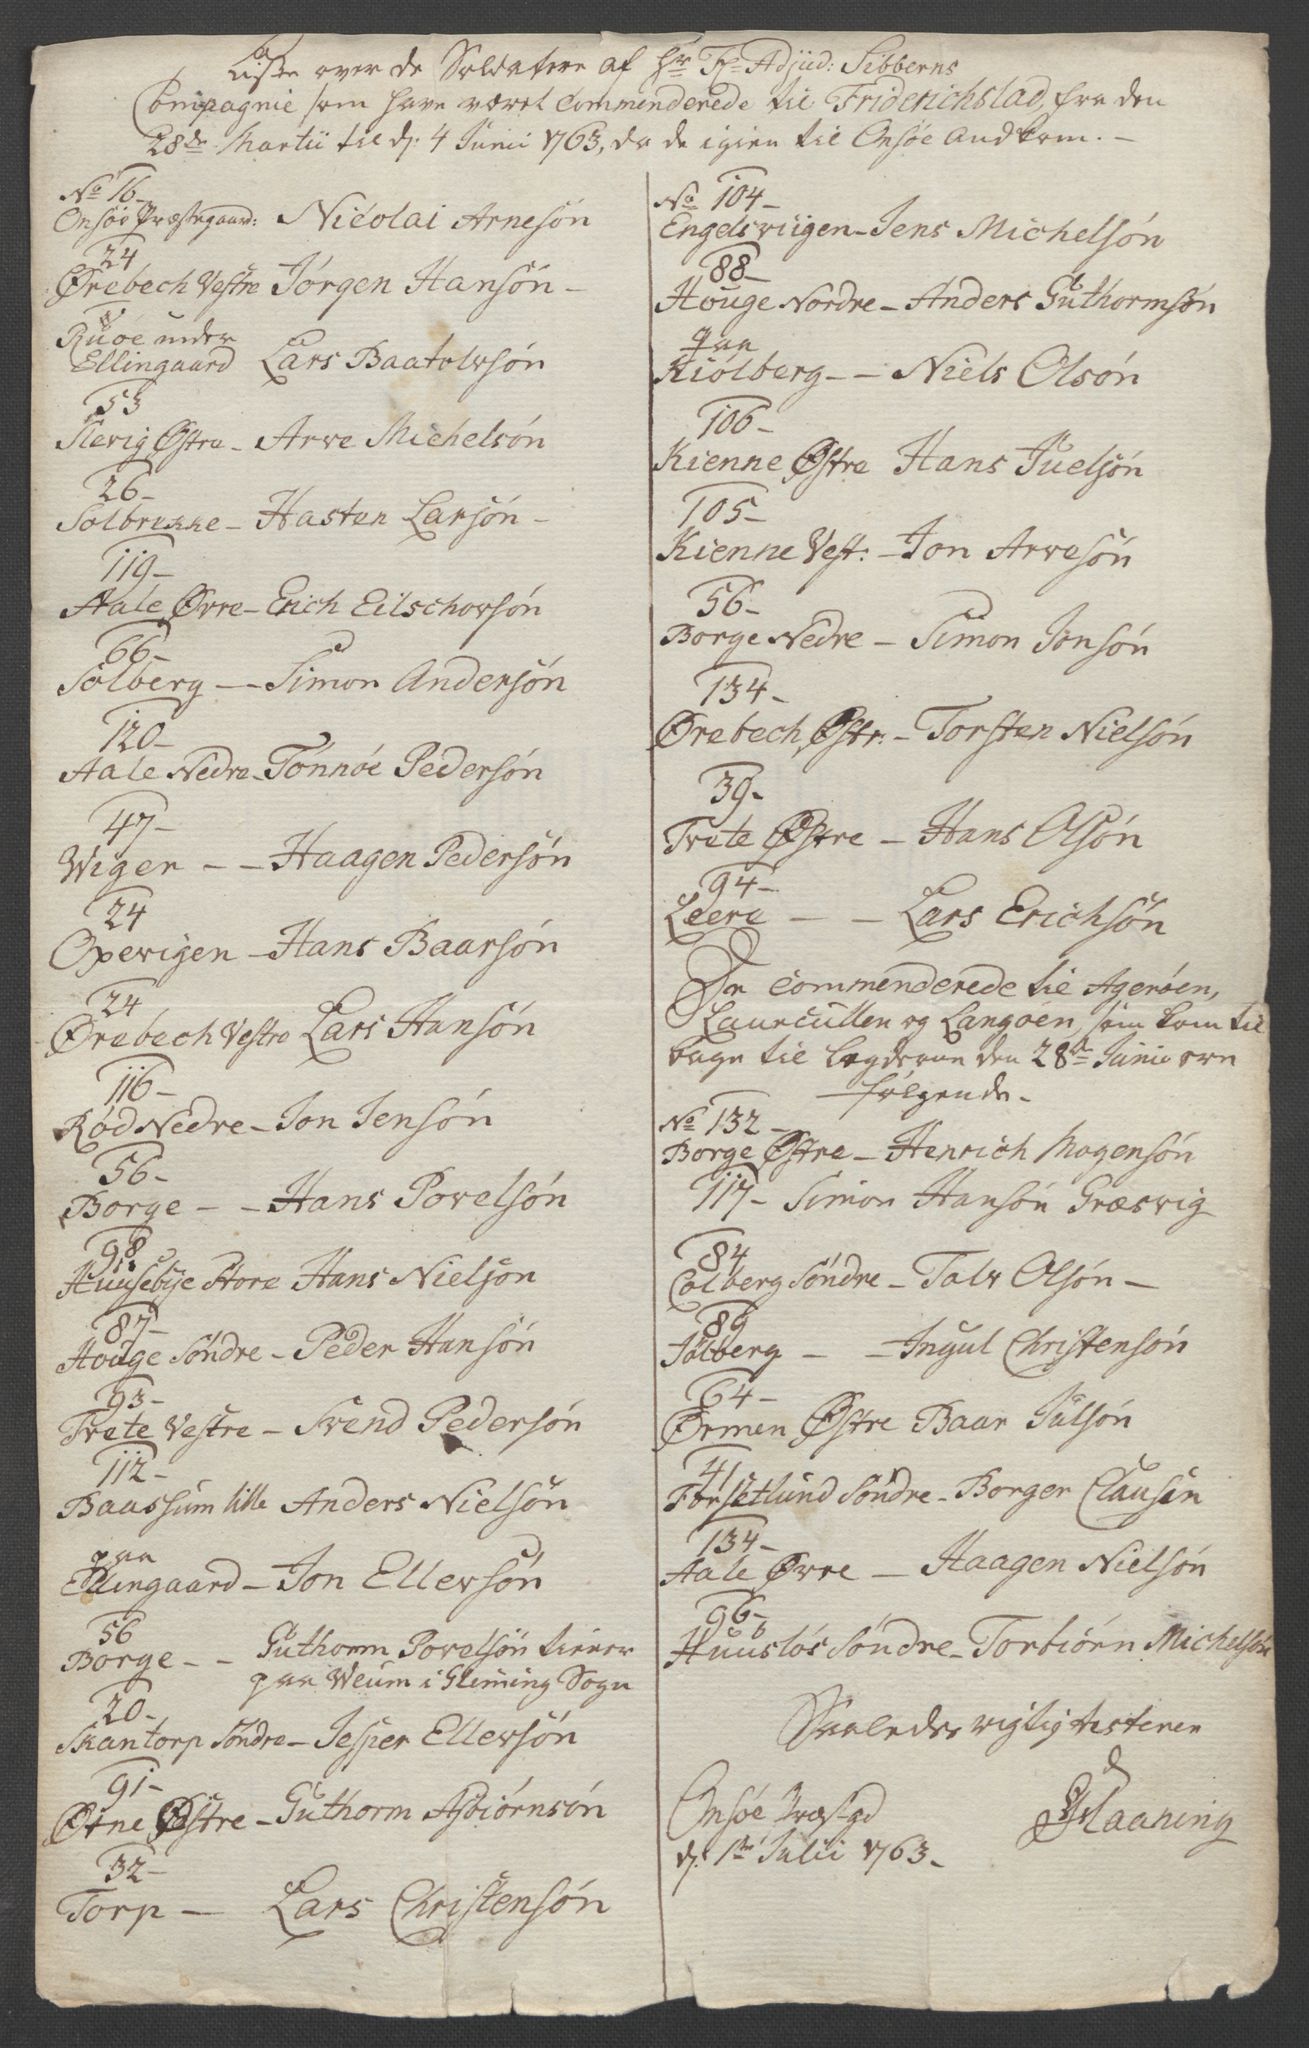 Liste over de Soldatere af Hr: Adjud: Sibberns
Compagnie som have været Commenderede til Friderichstad, fra den
28de Martii til d: 4 Junii 1763, da de igien til Onsøe Andkom.-
No 16-
Onsøe Præstegaard: Nicolai Arnesøn
24
Ørebech Vestre Jørgen Hansøn-
Ruøe under
Ellingaard Lars Baatolvsøn
53
Slevig Østre- Arve Michelsøn
26-
Solbrekke- Hasten Larsøn-
119-
Aale Øvre- Erich Eilschovsøn
66-
Solberg -- Simon Andersøn
120-
Aale Nedre- Tønnøe Pedersøn
47-
Wiger -- Haagen Pedersøn
24
Oxevigen- Hans Baarsøn
24
Ørebech Vestre Lars Hansøn
116-
Rød Nedre- Jon Jensøn
56-
Borge -- Hans Povelsøn
98
Huusebye Store Hans Nielsøn
87-
Houge Søndre- Peder Hansøn
93-
Trete Vestre- Svend Pedersøn
112-
Baassum lille Anders Nielsøn
paa
Ellingaard- Jon Ellevsøn
56
Borge -- Guthorm Povelsøn tiener
paa Weum i Gleming Sogn
20-
Skantorp Søndre- Jesper Ellevsøn
91-
Ørne Østre- Guthorm Asbiørnsøn
32-
Torp - Lars Christensøn
No 104-
Engelsviigen- Jens Michelsøn
88-
Houge Nordre- Anders Guthormsøn
paa
Kiølberg -- Niels Olsøn
106-
Kienne Østre Hans Juelsøn
105-
Kienne Vest:- Jon Arvesøn
56-
Borge Nedre- Simon Jonsøn
134-
Ørebech Østr:- Torsten Nielsøn
39-
Trete Østre- Hans Olsøn
94-
Leere -- Lars Erichsøn
De Commenderede til Agerøen,
Laurcullen og Langøen, som kom til
bage til Legderne den 28de Junii ere
følgende-
No 132-
Borge Østre- Henrich Mogensøn
117- Simon Hansøn Græsvig
84
Colberg Søndre- Talv Olsøn-
89
Solberg -- Ingul Christensøn
64-
Ørmen Østre Baar Julsøn
41
Forsetlund Søndre- Borger Clausen
134-
Aale Øvre - Haagen Nielsøn
96-
Huusløs Søndre- Torbiørn Michelsøn
Saaledes rigtig testerer
Onsøe Præstgd
d: 1te Julii 1763-